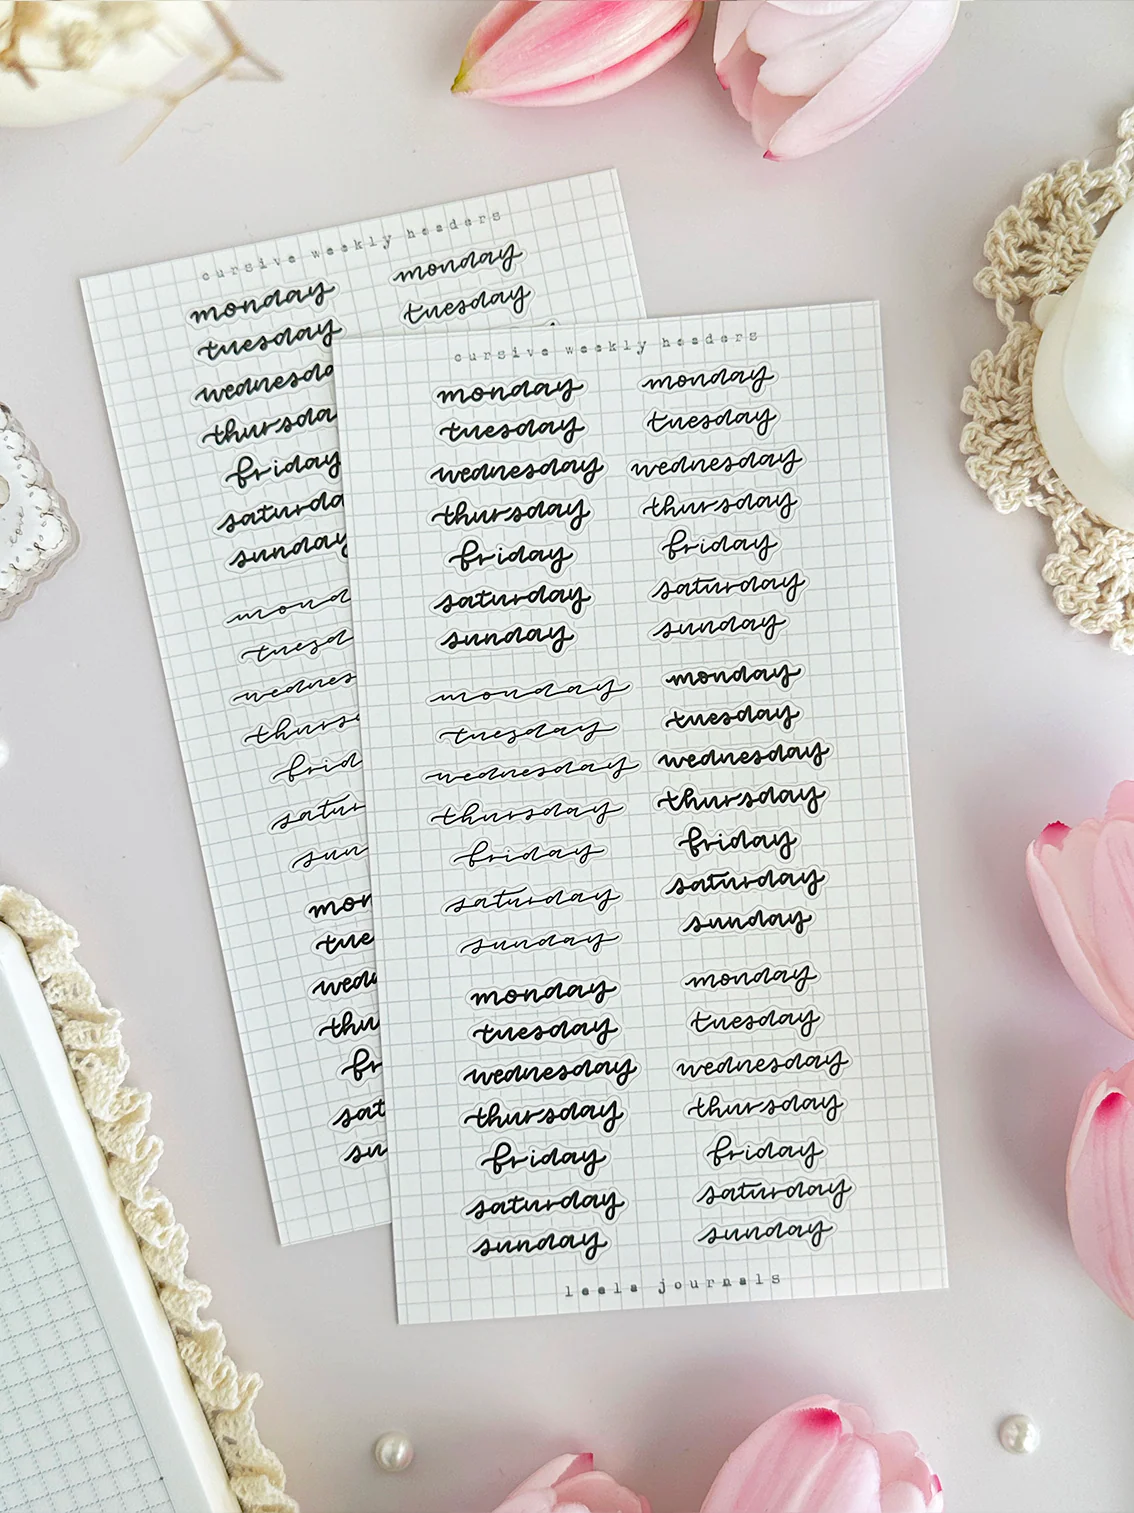 cursive weekly headers
monday
tuesday
wednesda
thursda
friday
saturda
sunday
mond
tuesd
wednes
thurs
frid
satur
sun
mon
tue
wed
thu
fr
sat
su
monday
tuesday
cursive weekly headers
monday
tuesday
wednesday
thursday
friday
saturday
sunday
monday
tuesday
wednesday
thursday
friday
saturday
sunday
monday
tuesday
wednesday
thursday
friday
saturday
sunday
monday
tuesday
wednesday
thursday
friday
saturday
sunday
monday
tuesday
wednesday
thursday
friday
saturday
sunday
monday
tuesday
wednesday
thursday
friday
saturday
sunday
leela journals